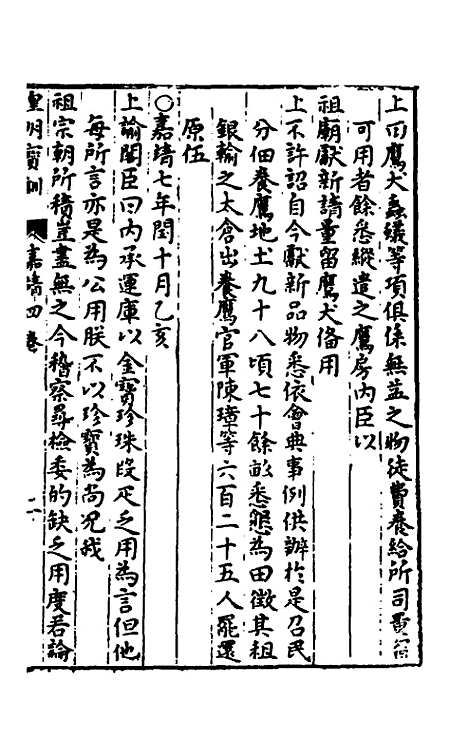 上曰鷹犬蟲蟻等項俱係無益之物徒費養給所司
可用者餘悉縱遣之鷹房內臣以
祖廟獻新請量留鷹犬俻用
上不許詔自今獻新品物悉依會典事例供辦於是召民
分佃養鷹地土九十八頃七十餘畝悉墾為田徵其租
銀輸之太倉出養鷹官軍陳璋等六百二十五人罷還
原伍
○嘉靖七年閏十月乙亥
上諭閣臣曰內承運庫以金寶珍珠段疋乏用為言但他
每所言亦是為公用朕不以珍寶為尚況我
祖宗朝所積豈盡無之今稽察尋檢委的缺乏用度若論
皇明寶訓 嘉靖四卷 二